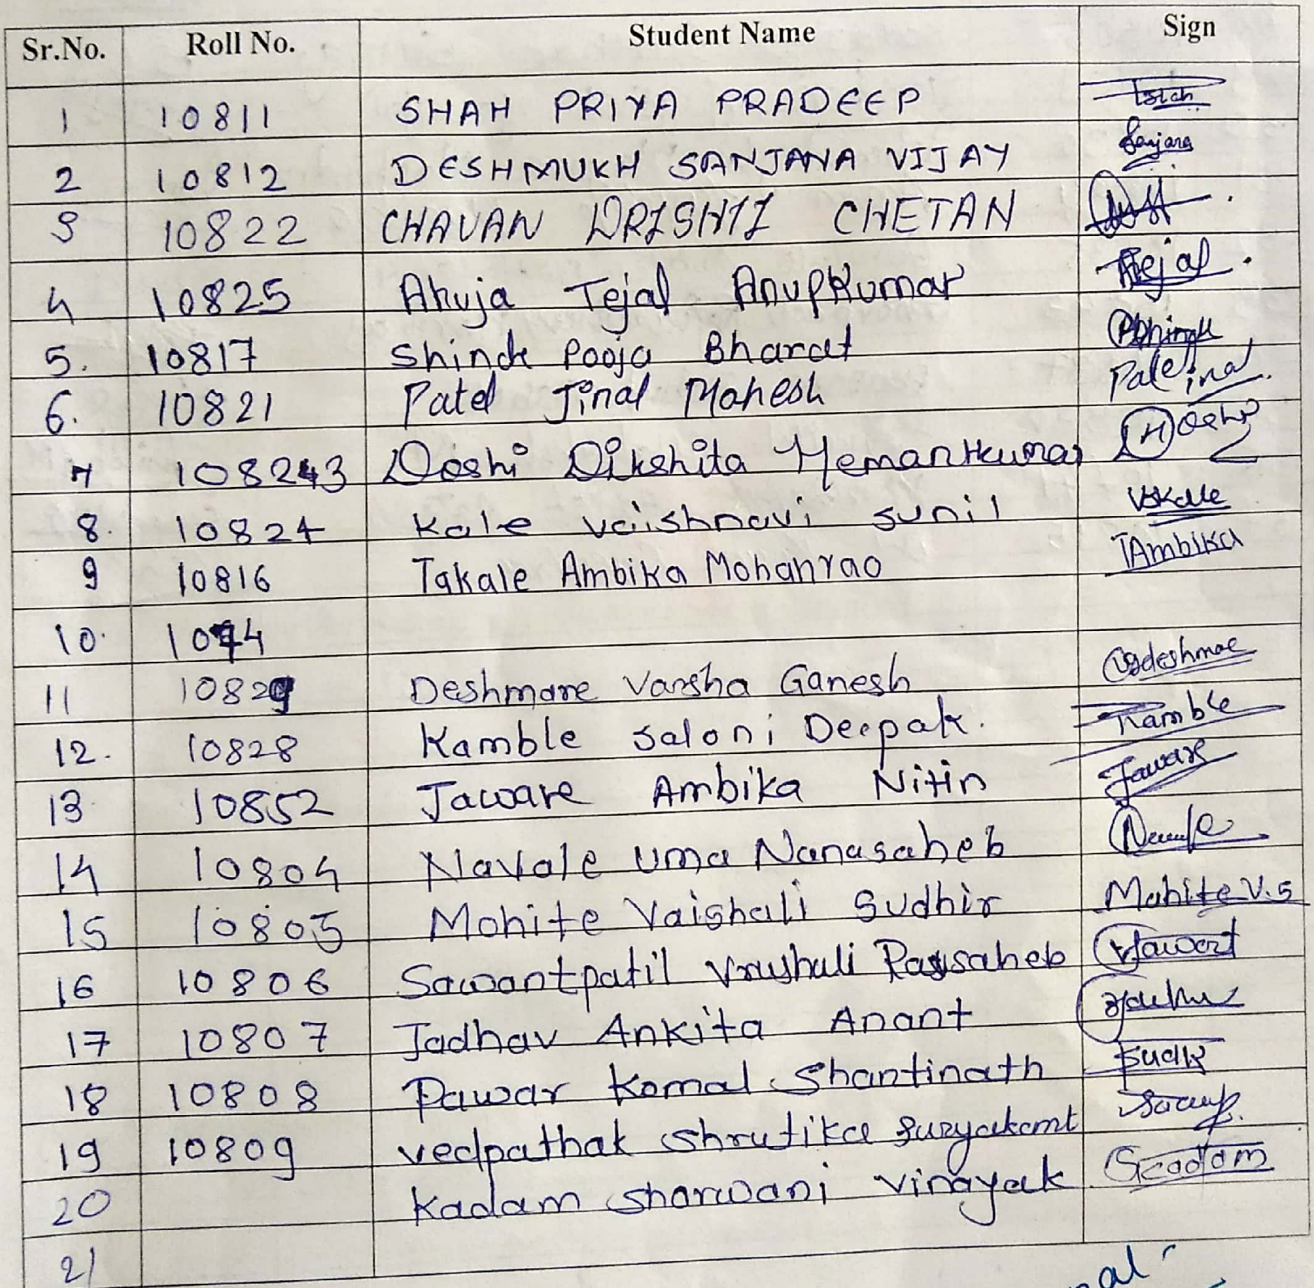 Sr.No. Roll No. Student Name Sign
1 10811 SHAH PRIYA PRADEEP
2 10812 DESHMUKH SANJANA VIJAY Sanjana
3 10822 CHAVAN DRISHTI CHETAN
4 10825 Ahuja Tejal Anupkumar Tejal.
5. 10817 Shinde Pooja Bharat
6. 10821 Patel Jinal Mahesh
7 108243 Doshi Dikshita Hemantkumar
8. 10824 Kale vaishnavi sunil VSKale
9 10816 Takale Ambika Mohanrao TAmbika
10. 1074
11 10829 Deshmane Varsha Ganesh
12. 10828 Kamble saloni Deepak. Kamble
13 10852 Jaware Ambika Nitin Jaware
14 10804 Navale uma Nanasaheb
15 10805 Mohite Vaishali Sudhir Mohite V.S
16 10806 Sawantpatil Vrushali Raysaheb
17 10807 Jadhav Ankita Anant
18 10808 Pawar Komal Shantinath
19 10809 vedpathak shrutika suryakant
20 Kadam sharwani vinayak
21